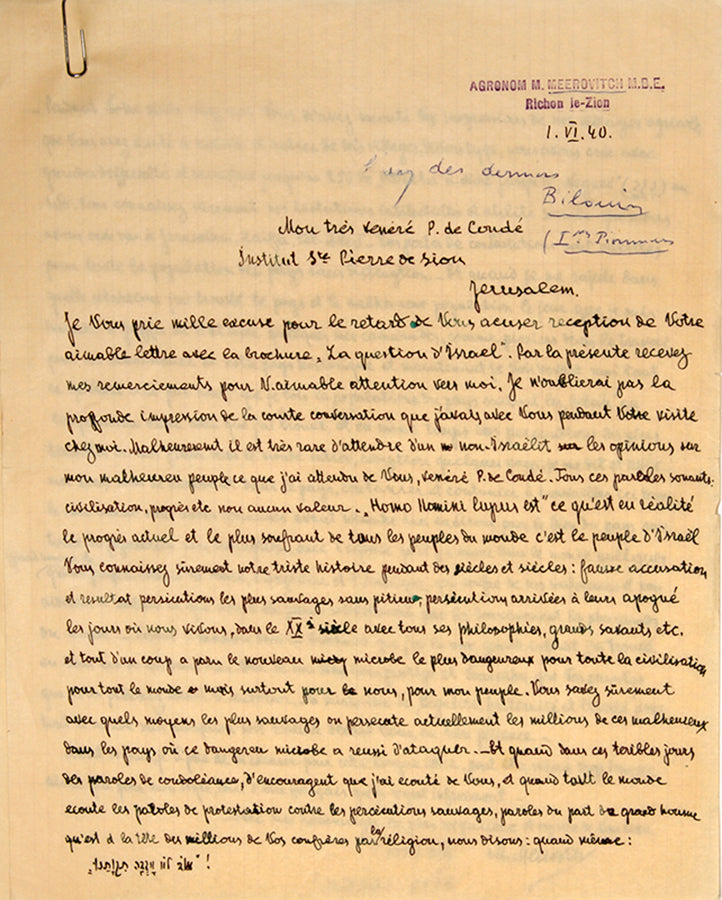 AGRONOM M. MEEROVITCH M.D.E.
Richon le-Zion
1. VI. 40.
des derniers
Bilouim
(Iers Pionniers
Mon très vénéré P. de Condé
Institut Ste Pierre de Sion
Jerusalem.
Je Vous prie mille excuse pour le retard de Vous acuser reception de Votre
aimable lettre avec la brochure „La question d'Israel". Par la présente recevez
mes remerciements pour V. aimable attention vers moi. Je n'oublierai pas la
proffonde impression de la courte conversation que j'avais avec Vous pendant Votre visite
chez moi. Malheuresemt il est très rare d'attendre d'un non-Israëlit les opinions sur
mon malheureu peuple ce que j'ai attendu de Vous, vénéré P. de Condé. Tous ces paroles sonants:
civilisation, progrès etc non aucun valeur. „Homo Homini lupus est" ce qu'est en réalité
le progrès actuel et le plus soufrant de tous les peuples du monde c'est le peuple d'Israël
Vous connaissez sûrement notre triste histoire pendant des siècles et siècles: fausse accusation
et resultat persicutions les plus sauvages sans pitieu, persécutions arrivées à leurs apogué
les jours où nous vivons, dans le XXe siècle avec tous ses philosophies, grands savants etc.
et tout d'un coup a paru le nouveau microbe le plus dangeureux pour toute la civilisation
pour tout le monde mais surtout pour nous, pour mon peuple. Vous savez sûrement
avec quels moyens les plus sauvages on persecute actuellement les millions de ces malheureux
dans les pays où ce dangereu microbe a reussi d'ataquer. — Et quand dans ces teribles jours
des paroles de condoléance, d'encouragent que j'ai ecouté de Vous, et quand tout le monde
ecoute les paroles de protestation contre les percécutions sauvages, paroles du part de grand homme
qu'est à la tête des millions de Vos confrères par la réligion, nous disons: quand même: